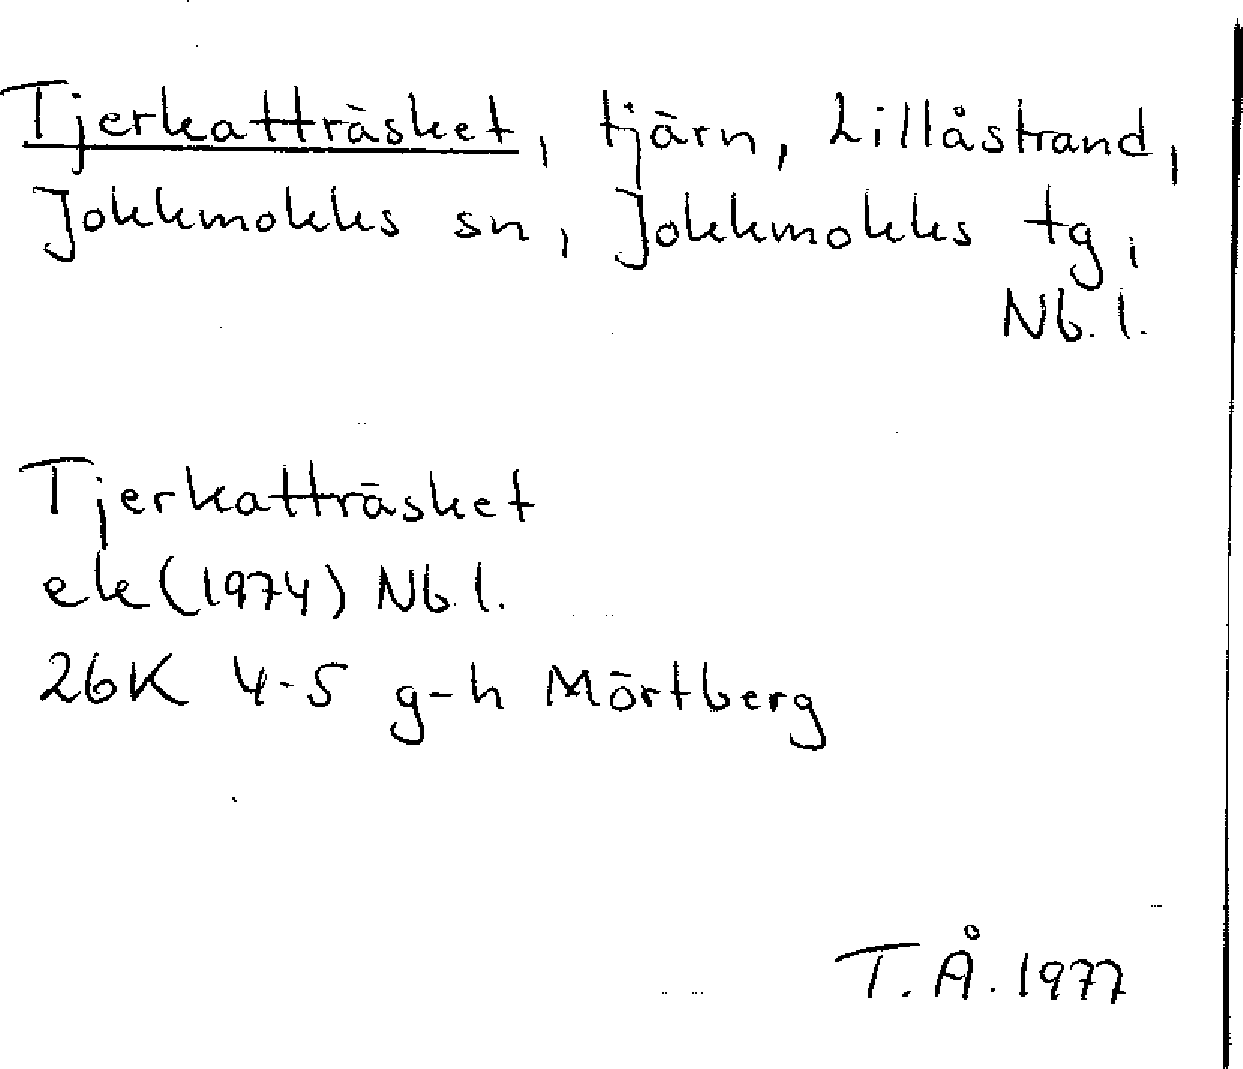 Tjerkatträsket, tjärn, Lillåstrand,
Jokkmokks sn, Jokkmokks tg,
Nb. l.
Tjerkatträsket
ek (1974) Nb. l.
26K 4-5 g-h Mörtberg
T. Å. 1977